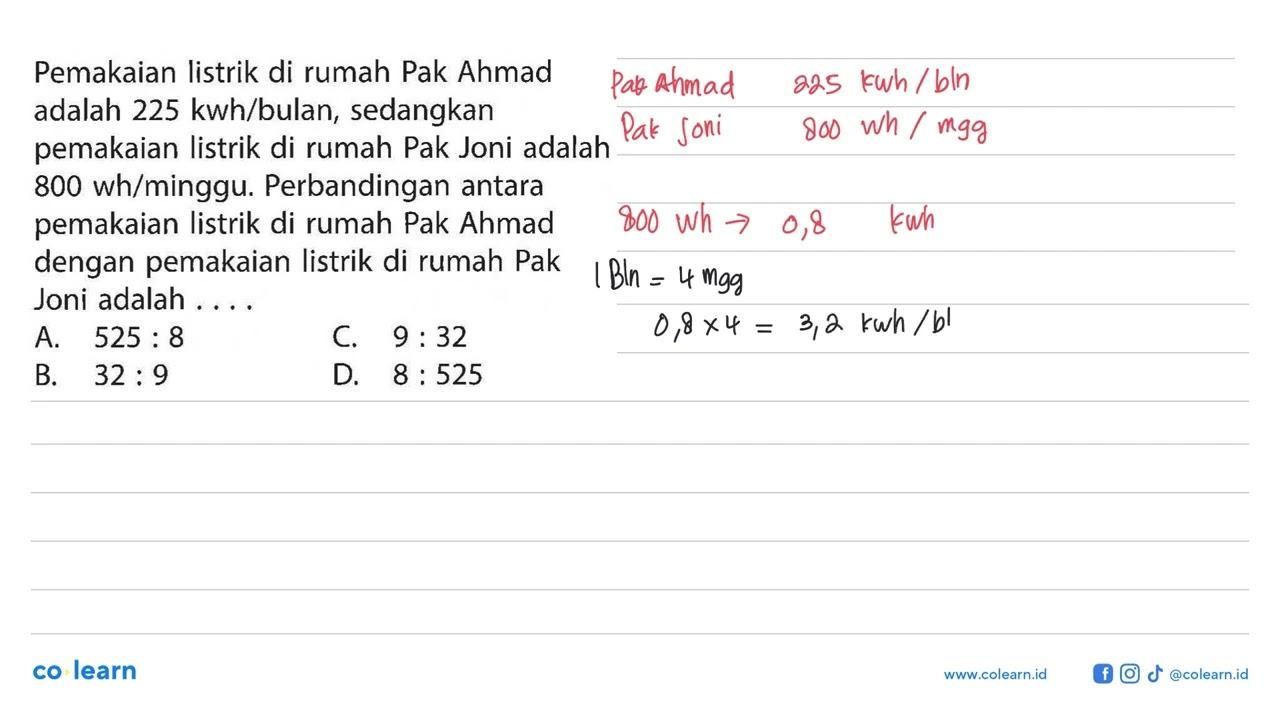 Pemakaian listrik di rumah Pak Ahmad
adalah 225 kwh/bulan, sedangkan
pemakaian listrik di rumah Pak Joni adalah
800 wh/minggu. Perbandingan antara
pemakaian listrik di rumah Pak Ahmad
dengan pemakaian listrik di rumah Pak
Joni adalah . . . .
A. 525 : 8 C. 9 : 32
B. 32 : 9 D. 8 : 525
Pak Ahmad 225 kwh/bln
Pak Joni 800 wh/mgg
800 wh → 0,8 kwh
1 Bln = 4 mgg
0,8 × 4 = 3,2 kwh/bl
co learn
www.colearn.id @colearn.id